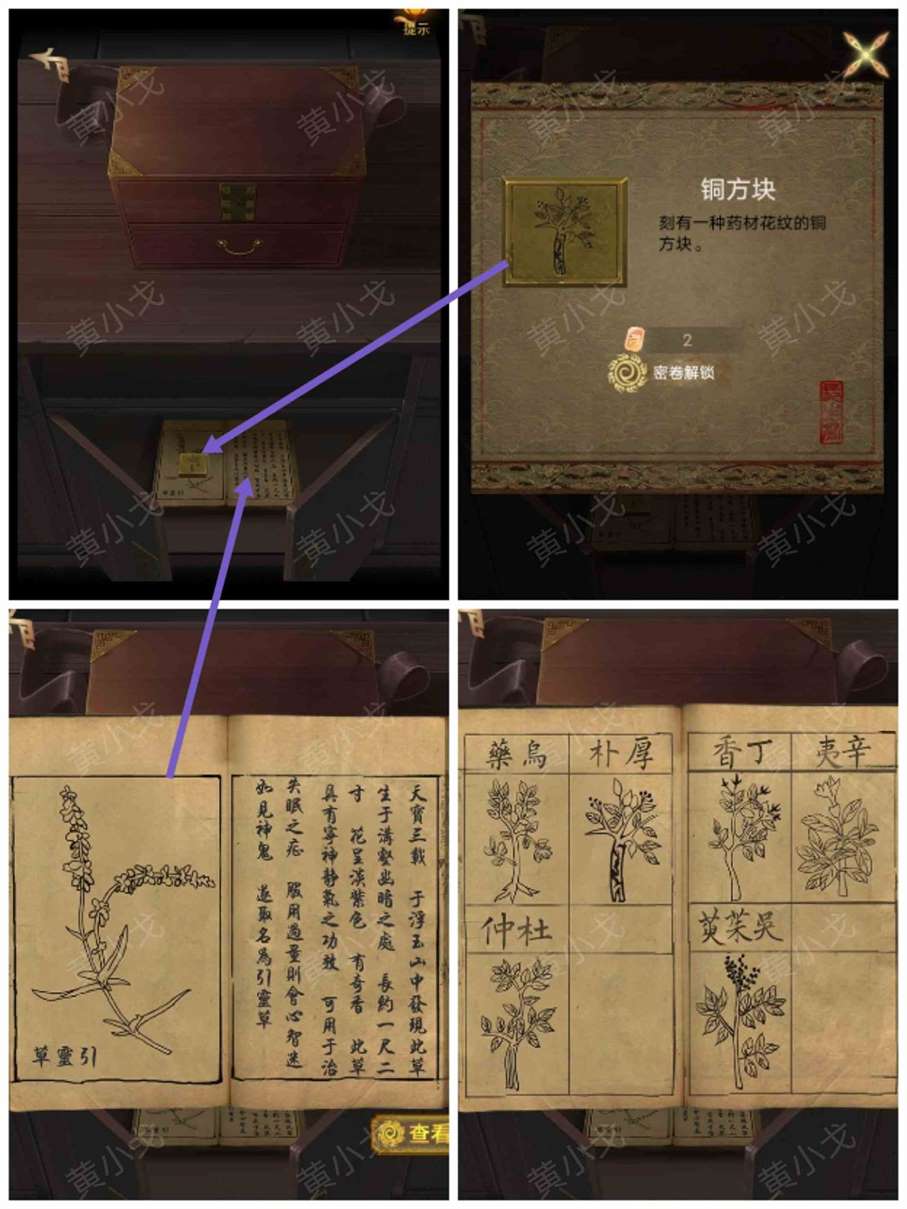 提示
铜方块
刻有一种药材花纹的铜
方块。
2
密卷解锁
天寶三載 于浮玉山中發現此草
生于溝壑幽暗之處 長約一尺二
寸 花呈淡紫色 有奇香 此草
具有寧神靜氣之功效 可用于治
失眠之症 服用過量則會心智迷
如見神鬼 遂取名爲引靈草
引靈草
查看
辛夷
丁香
厚朴
烏藥
吳茱萸
杜仲
黄小戈